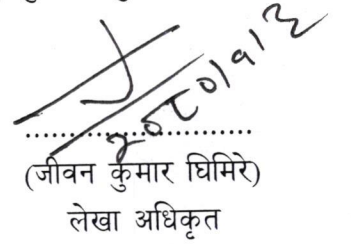 २०८०।१।३
..............................
(जीवन कुमार घिमिरे)
लेखा अधिकृत